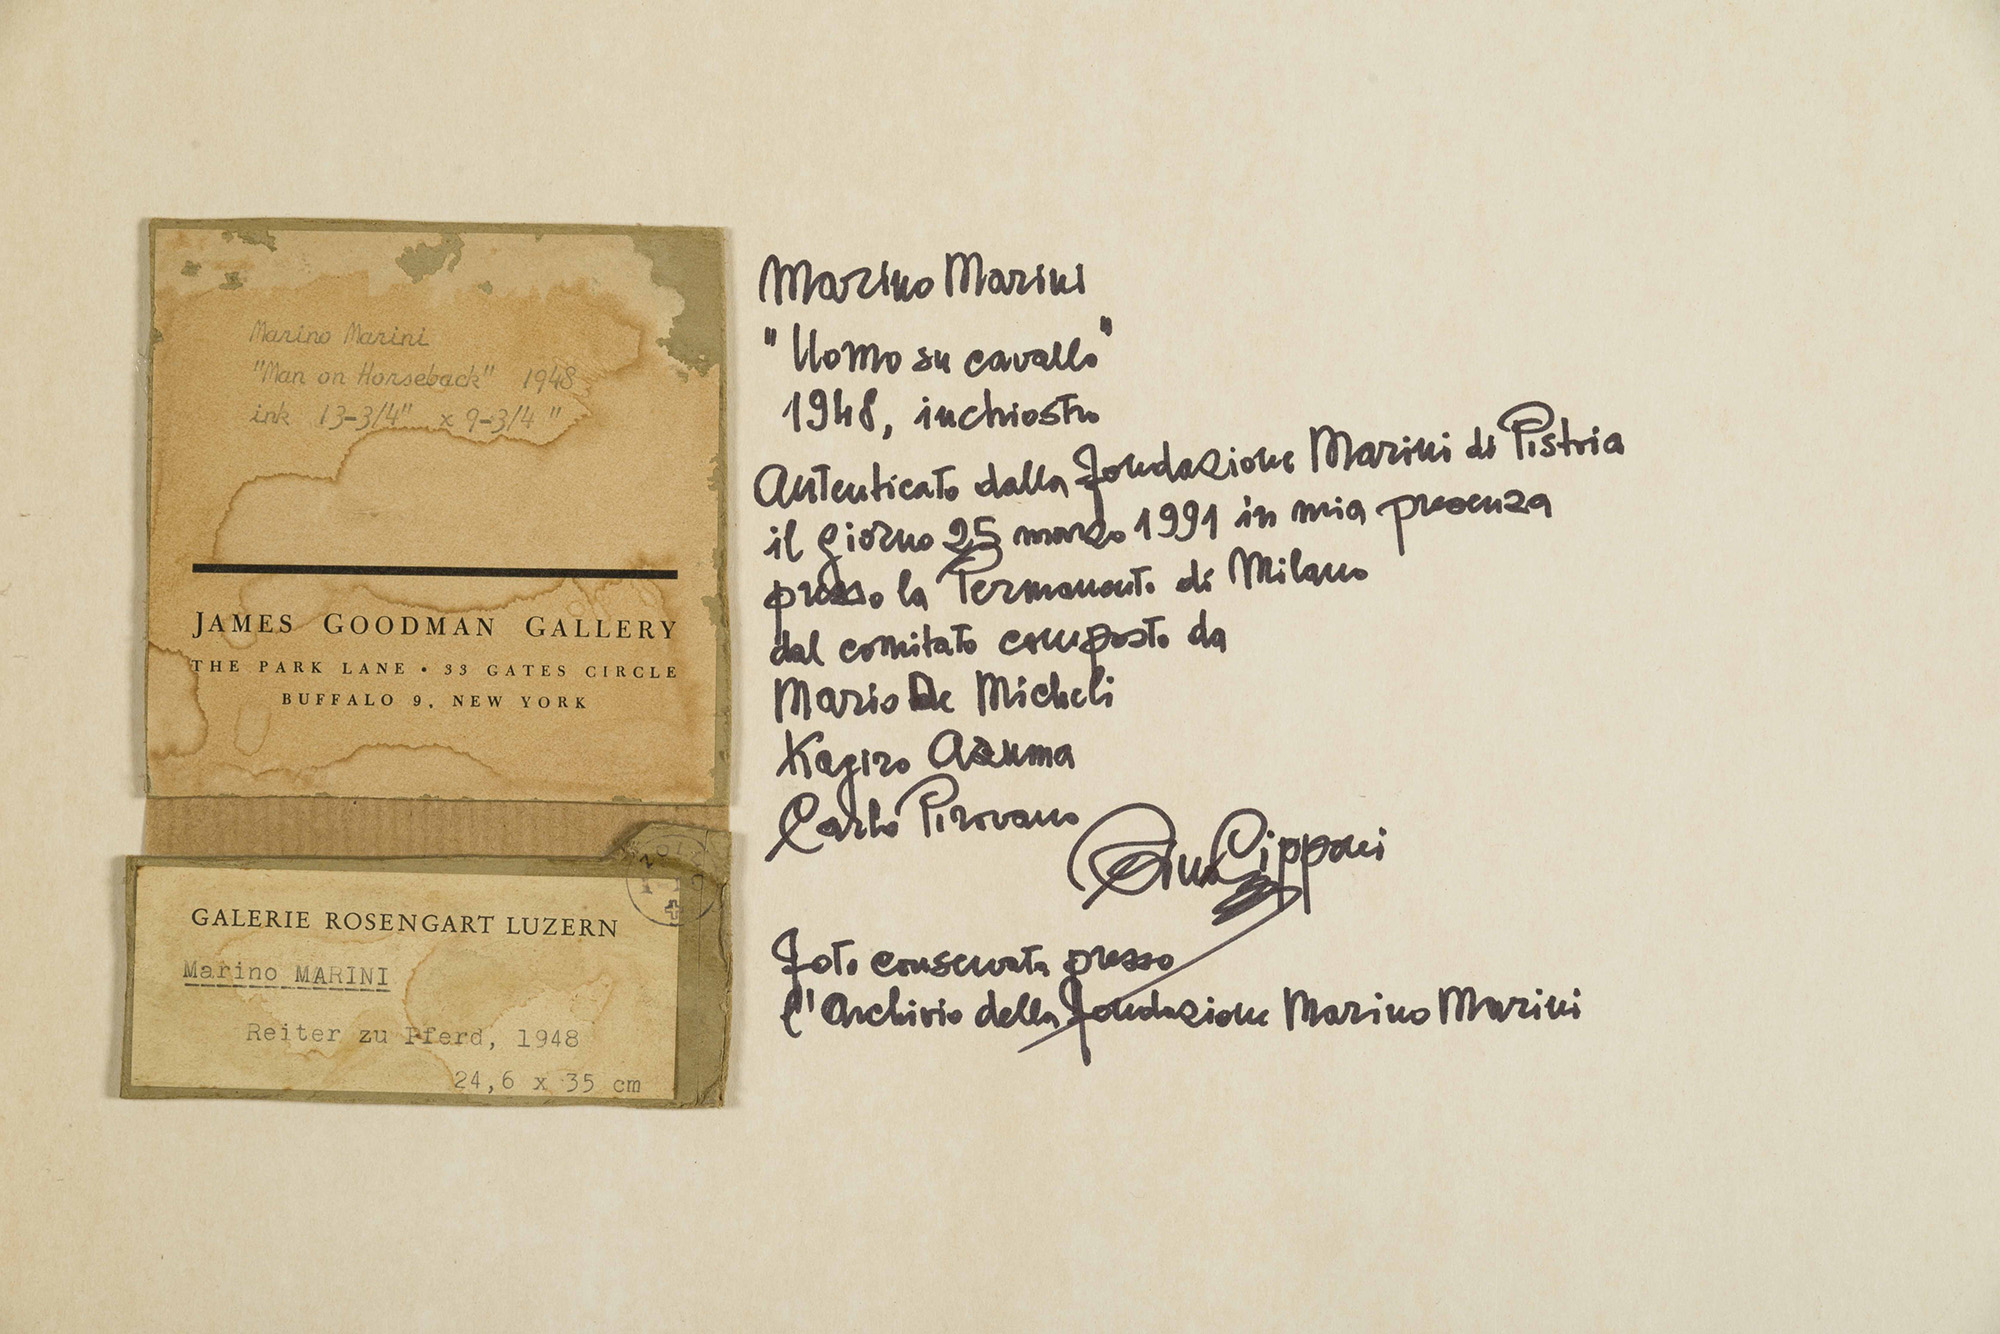 Marino Marini
"Man on Horseback" 1948
ink 13-3/4" x 9-3/4"
JAMES GOODMAN GALLERY
THE PARK LANE • 33 GATES CIRCLE
BUFFALO 9, NEW YORK
GALERIE ROSENGART LUZERN
Marino MARINI
Reiter zu Pferd, 1948
24,6 x 35 cm
Marino Marini
"Uomo su cavallo"
1948, inchiostro
Autenticato dalla Fondazione Marini di Pistoia
il giorno 25 marzo 1991 in mia presenza
presso la Permanente di Milano
dal comitato composto da
Mario De Micheli
Kagiro Azuma
Carlo Pirovano
Foto conservata presso
l'Archivio della Fondazione Marino Marini